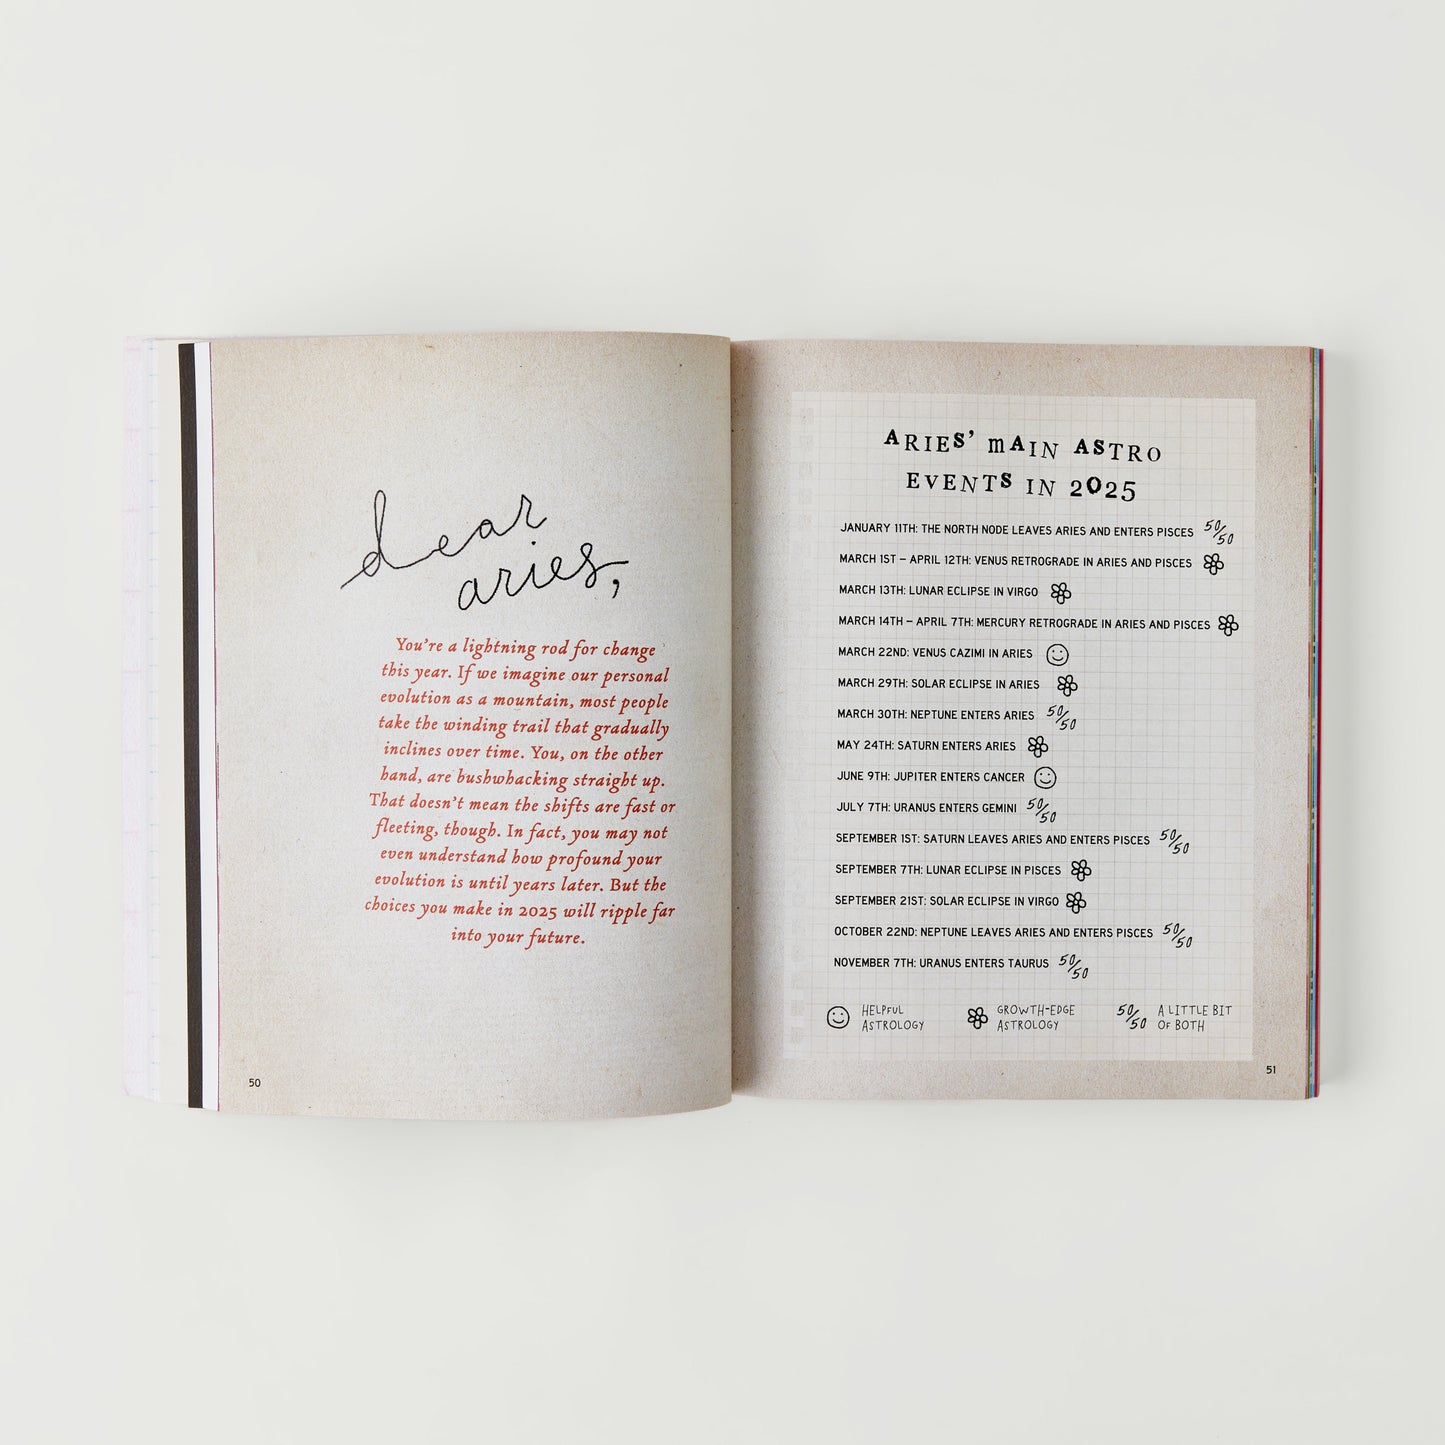 dear
aries,
You're a lightning rod for change
this year. If we imagine our personal
evolution as a mountain, most people
take the winding trail that gradually
inclines over time. You, on the other
hand, are bushwhacking straight up.
That doesn't mean the shifts are fast or
fleeting, though. In fact, you may not
even understand how profound your
evolution is until years later. But the
choices you make in 2025 will ripple far
into your future.
50
ARIES' mAIN ASTRO
EVENTS IN 2025
JANUARY 11TH: THE NORTH NODE LEAVES ARIES AND ENTERS PISCES 50/50
MARCH 1ST – APRIL 12TH: VENUS RETROGRADE IN ARIES AND PISCES
MARCH 13TH: LUNAR ECLIPSE IN VIRGO
MARCH 14TH – APRIL 7TH: MERCURY RETROGRADE IN ARIES AND PISCES
MARCH 22ND: VENUS CAZIMI IN ARIES
MARCH 29TH: SOLAR ECLIPSE IN ARIES
MARCH 30TH: NEPTUNE ENTERS ARIES 50/50
MAY 24TH: SATURN ENTERS ARIES
JUNE 9TH: JUPITER ENTERS CANCER
JULY 7TH: URANUS ENTERS GEMINI 50/50
SEPTEMBER 1ST: SATURN LEAVES ARIES AND ENTERS PISCES 50/50
SEPTEMBER 7TH: LUNAR ECLIPSE IN PISCES
SEPTEMBER 21ST: SOLAR ECLIPSE IN VIRGO
OCTOBER 22ND: NEPTUNE LEAVES ARIES AND ENTERS PISCES 50/50
NOVEMBER 7TH: URANUS ENTERS TAURUS 50/50
HELPFUL
ASTROLOGY
GROWTH-EDGE
ASTROLOGY
50/50 A LITTLE BIT
OF BOTH
51